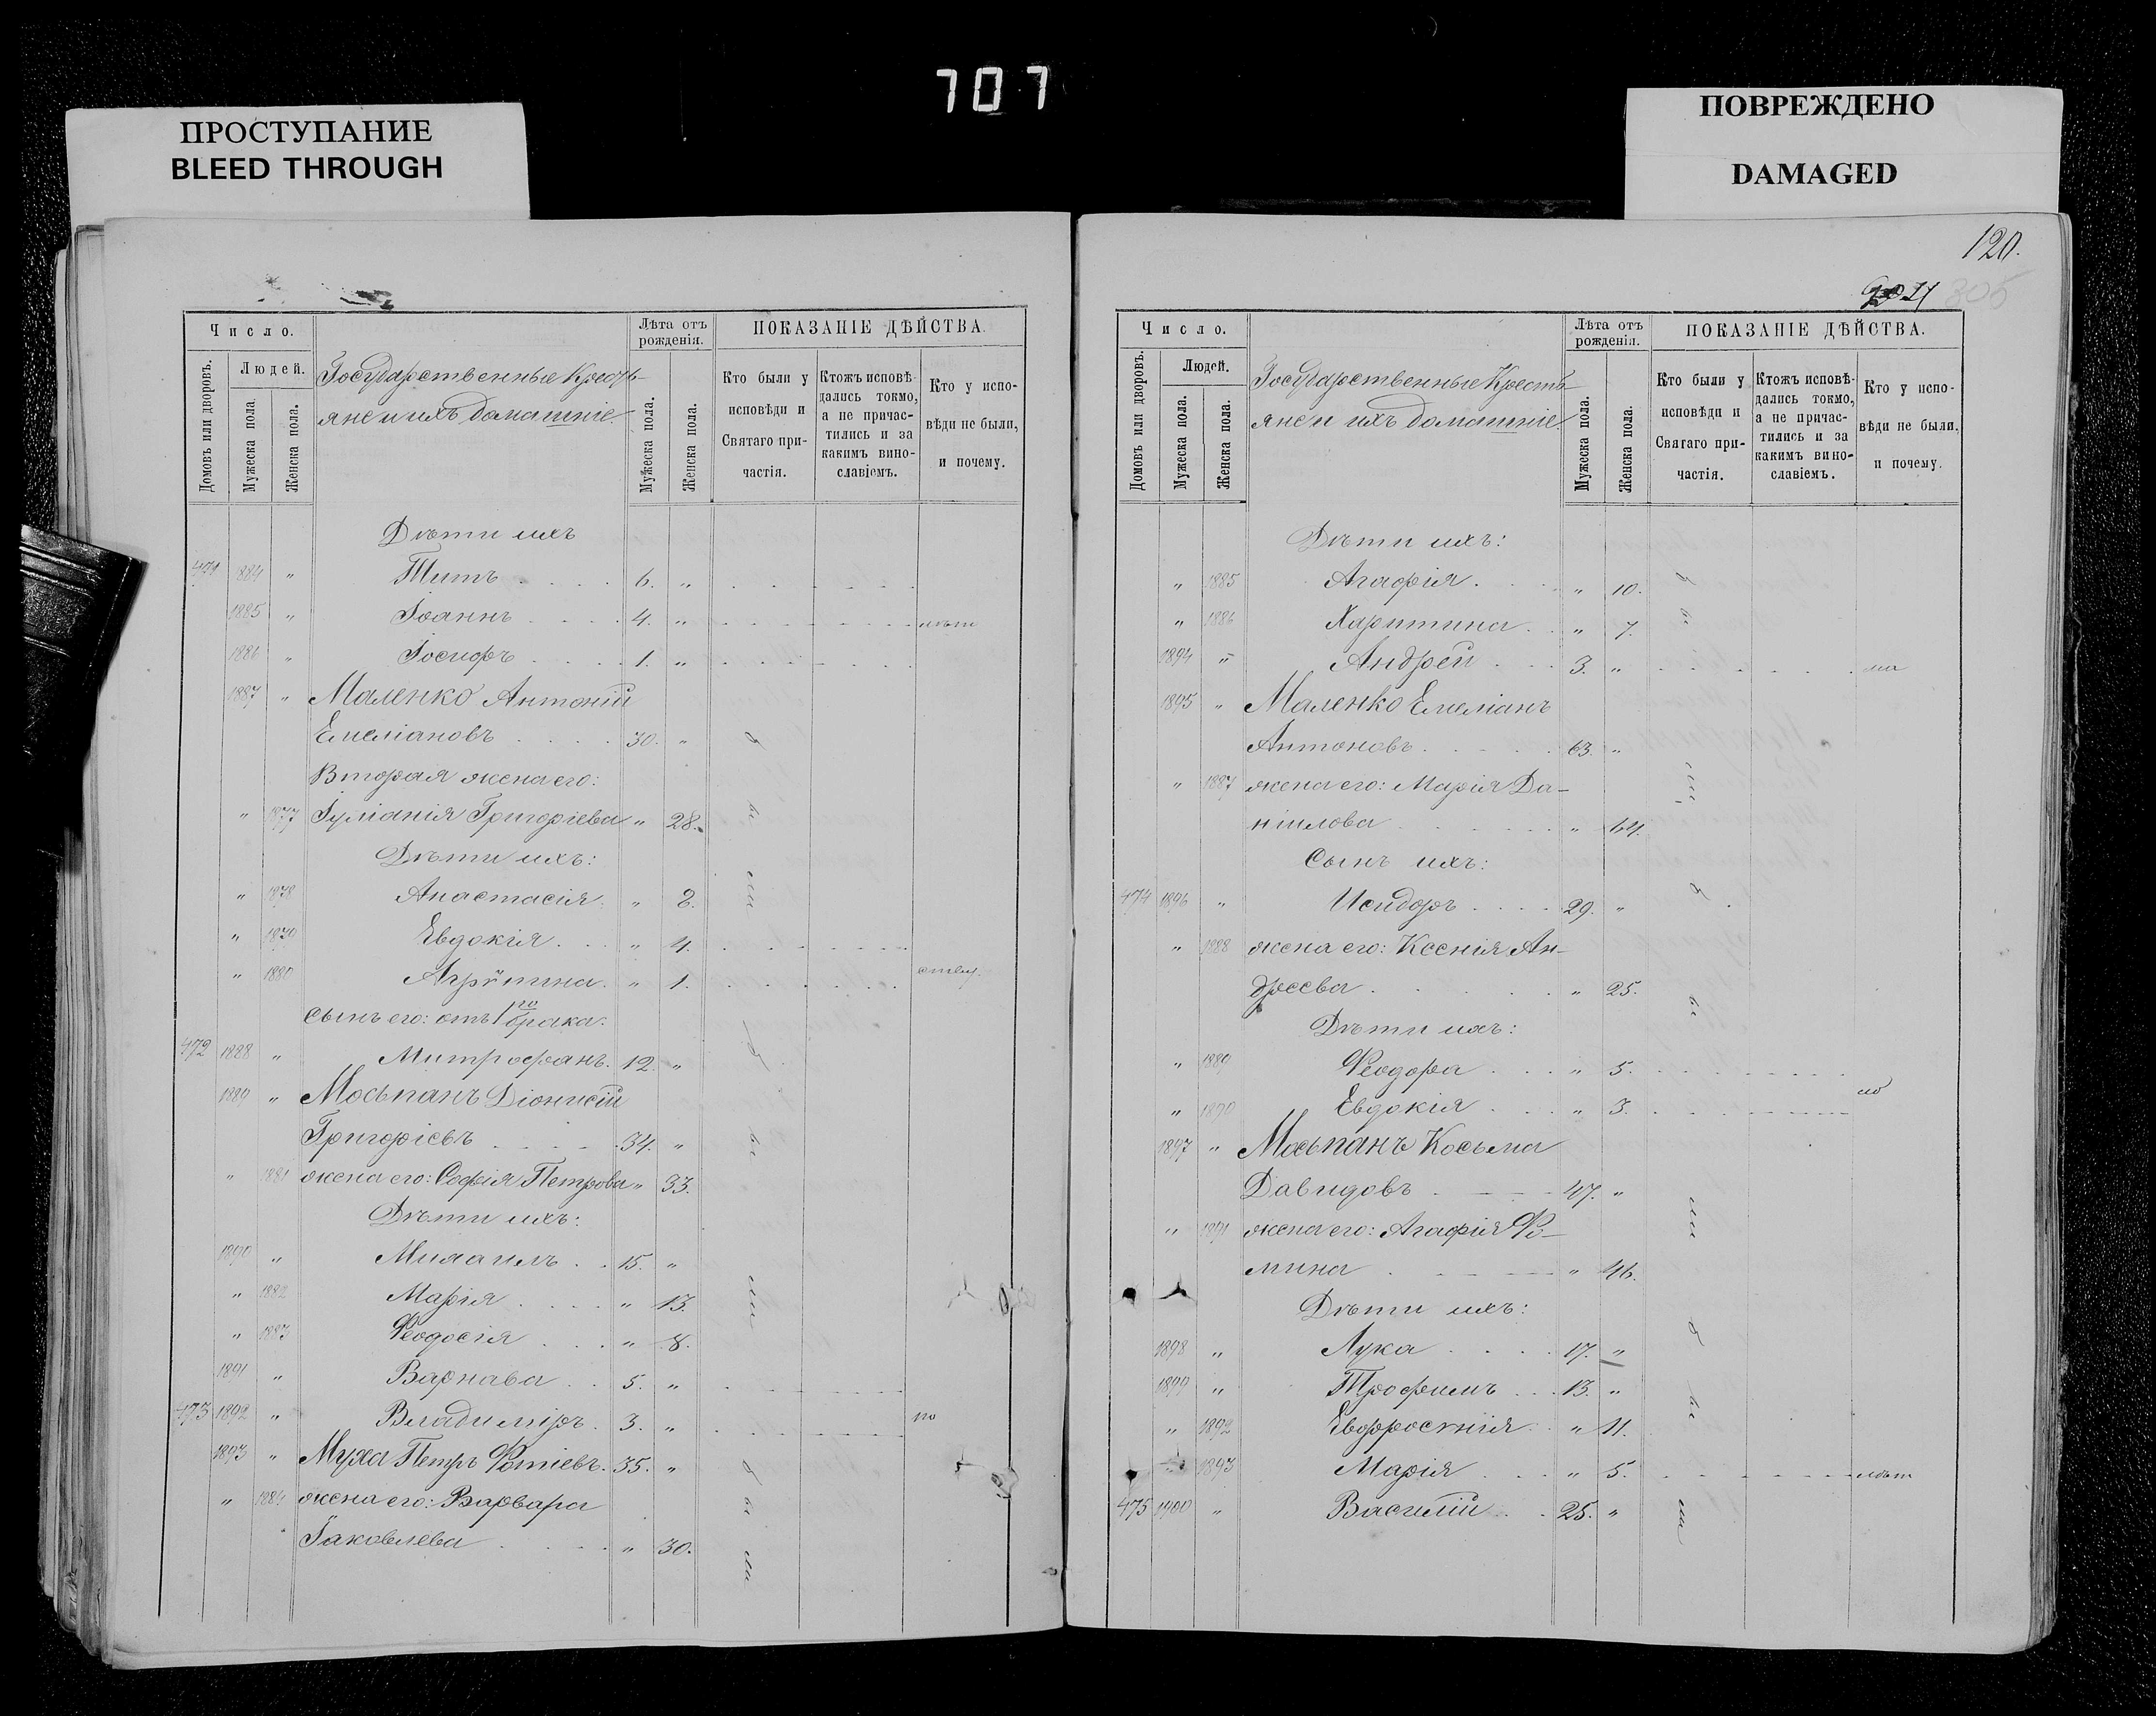 707
ПРОСТУПАНИЕ
BLEED THROUGH
ПОВРЕЖДЕНО
DAMAGED
Число.
Людей.
Домовъ или дворовъ.
Мужеска пола.
Женска пола.
Государственные Кресть-
яне и ихъ домашніе.
Лѣта отъ рожденія.
Мужеска пола.
Женска пола.
ПОКАЗАНІЕ ДѢЙСТВА.
Кто были у исповѣди и Святаго причастія.
Ктожъ исповѣдались токмо, а не причастились и за какимъ винославіемъ.
Кто у исповѣди не были, и почему.
Дѣти ихъ
471 1884 " Титъ 6. "
1885 " Іоаннъ 4. "
1886 " Іосифъ 1. "
1887 " Маленко Антоній
Емеліановъ 30. "
Вторая жена его:
" 1877 Іуліанія Григоріева " 28.
Дѣти ихъ:
" 1878 Анастасія " 8.
" Евдокія " 4.
" 1880 Агрѵпина " 1.
сынъ его: отъ 1го брака:
472 1888 " Митрофанъ 12. "
1889 " Моськпанъ Діонисій
Григоріевъ 34. "
" 1881 жена его: Софія Петрова " 33.
Дѣти ихъ:
1890 " Михаилъ 15. "
" 1882 Марія " 13.
" 1883 Ѳеодосія " 8.
1891 " Варнава 5. "
473 1892 " Владиміръ 3. "
1893 " Муха Петръ Фотіевъ 35. "
" 1884 жена его: Варвара
Іаковлева " 30.
120.
305
Число.
Людей.
Домовъ или дворовъ.
Мужеска пола.
Женска пола.
Государственные Кресть-
яне и ихъ домашніе.
Лѣта отъ рожденія.
Мужеска пола.
Женска пола.
ПОКАЗАНІЕ ДѢЙСТВА.
Кто были у исповѣди и Святаго причастія.
Ктожъ исповѣдались токмо, а не причастились и за какимъ винославіемъ.
Кто у исповѣди не были, и почему.
Дѣти ихъ:
" 1885 Агафія " 10.
" 1886 Харитина " 7.
1894 " Андрей 3. "
1895 " Маленко Емеліанъ
Антоновъ 63. "
" 1887 жена его: Марія Да-
ніилова " 64.
Сынъ ихъ:
474 1896 " Исидоръ 29. "
" 1888 жена его: Ксенія Ан-
дреева " 25.
Дѣти ихъ:
" 1889 Ѳеодора " 5.
" 1890 Евдокія " 3.
1897 " Моськпанъ Косьма
Давидовъ 47. "
" 1891 жена его: Агафія Ѳо-
мина " 46.
Дѣти ихъ:
1898 " Лука 17. "
1899 " Трофимъ 13. "
" 1892 Евфросинія " 11.
1893 Марія " 5.
475 1900 " Василій 25. "